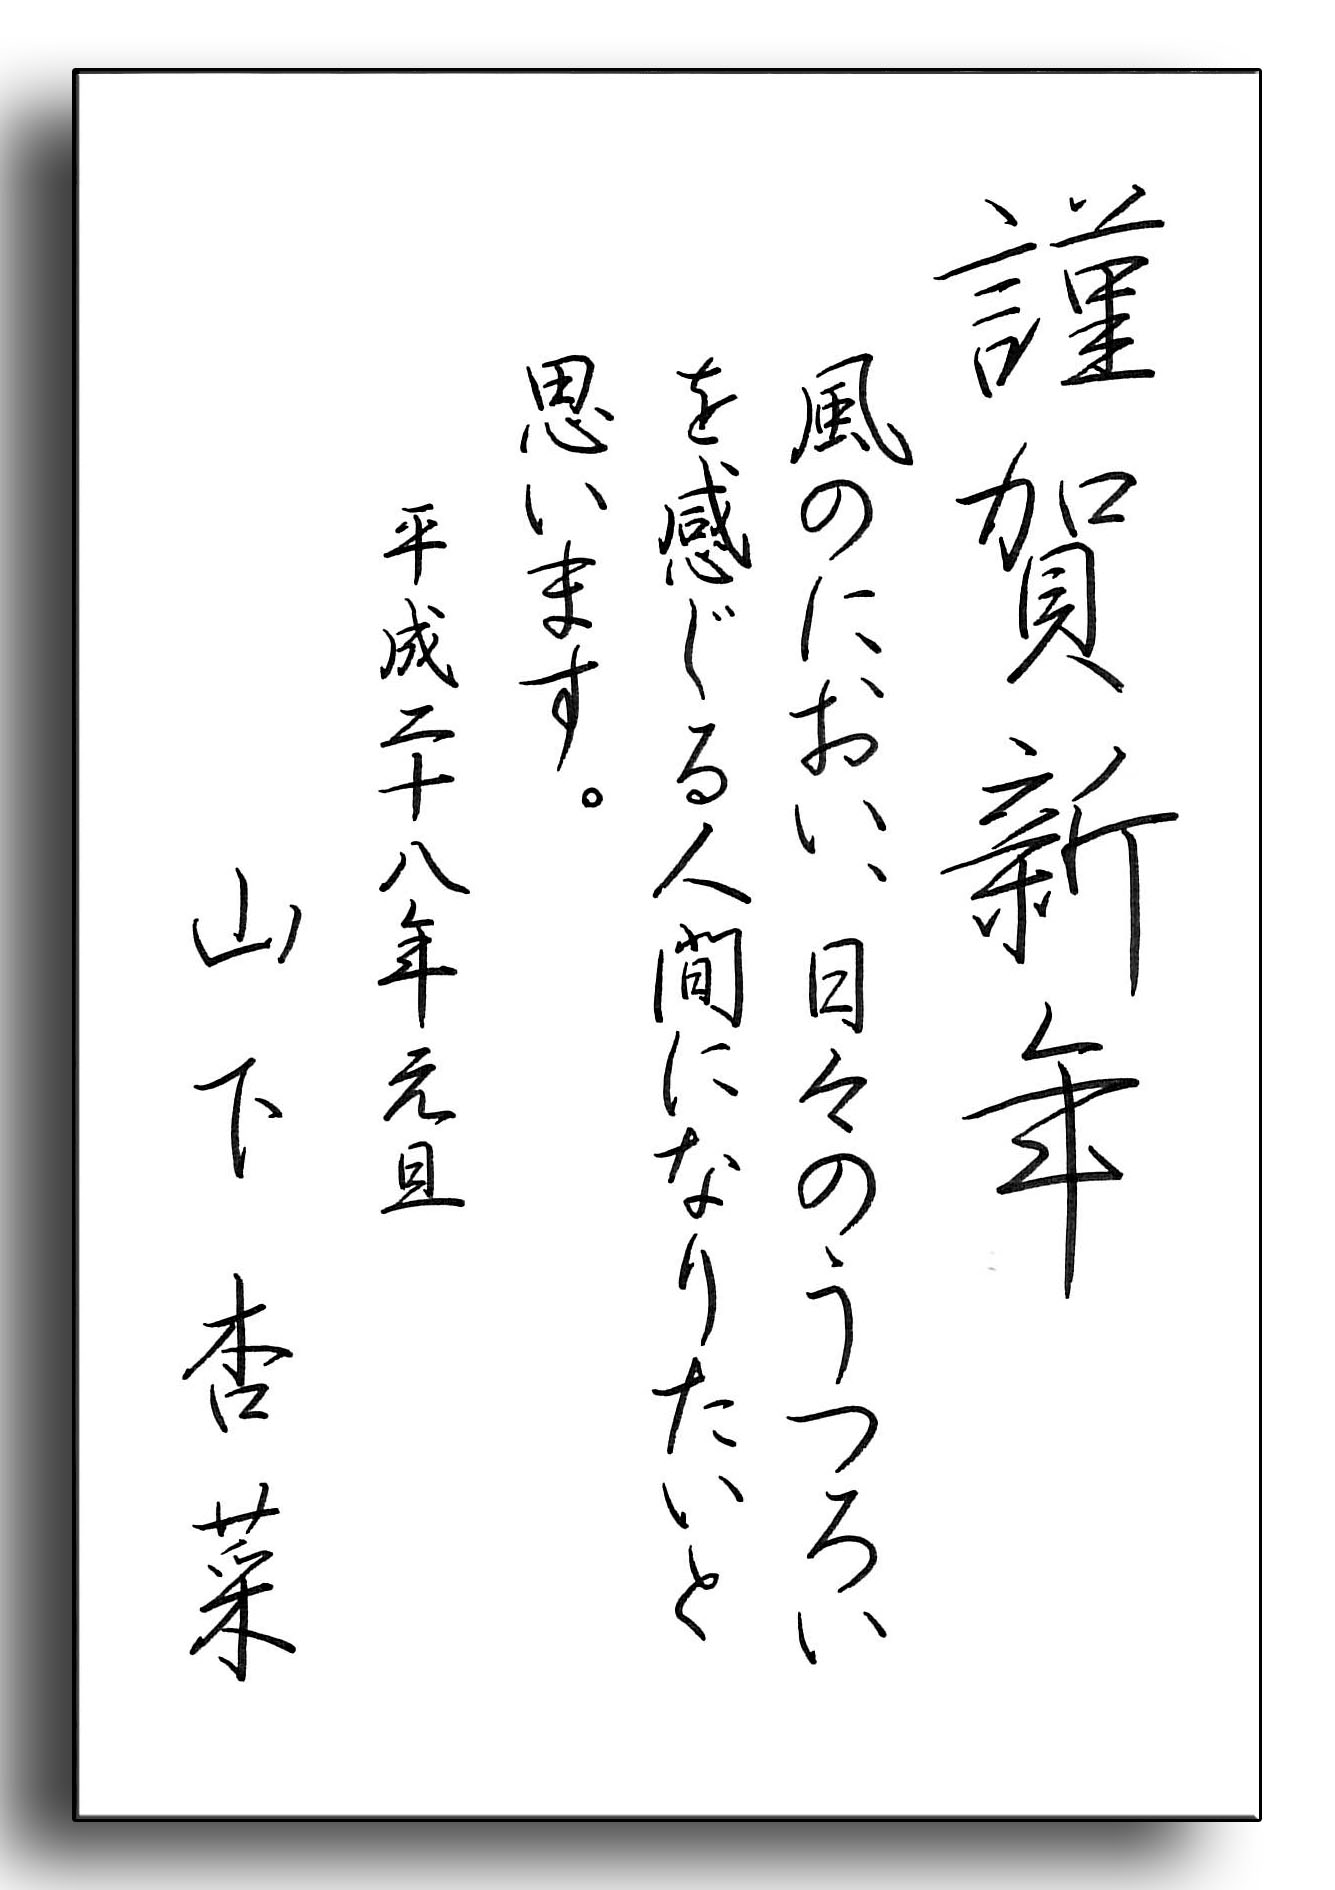 謹賀新年
風のにおい、日々のうつろい
を感じる人間になりたいと
思います。
平成二十八年元旦
山下杏菜